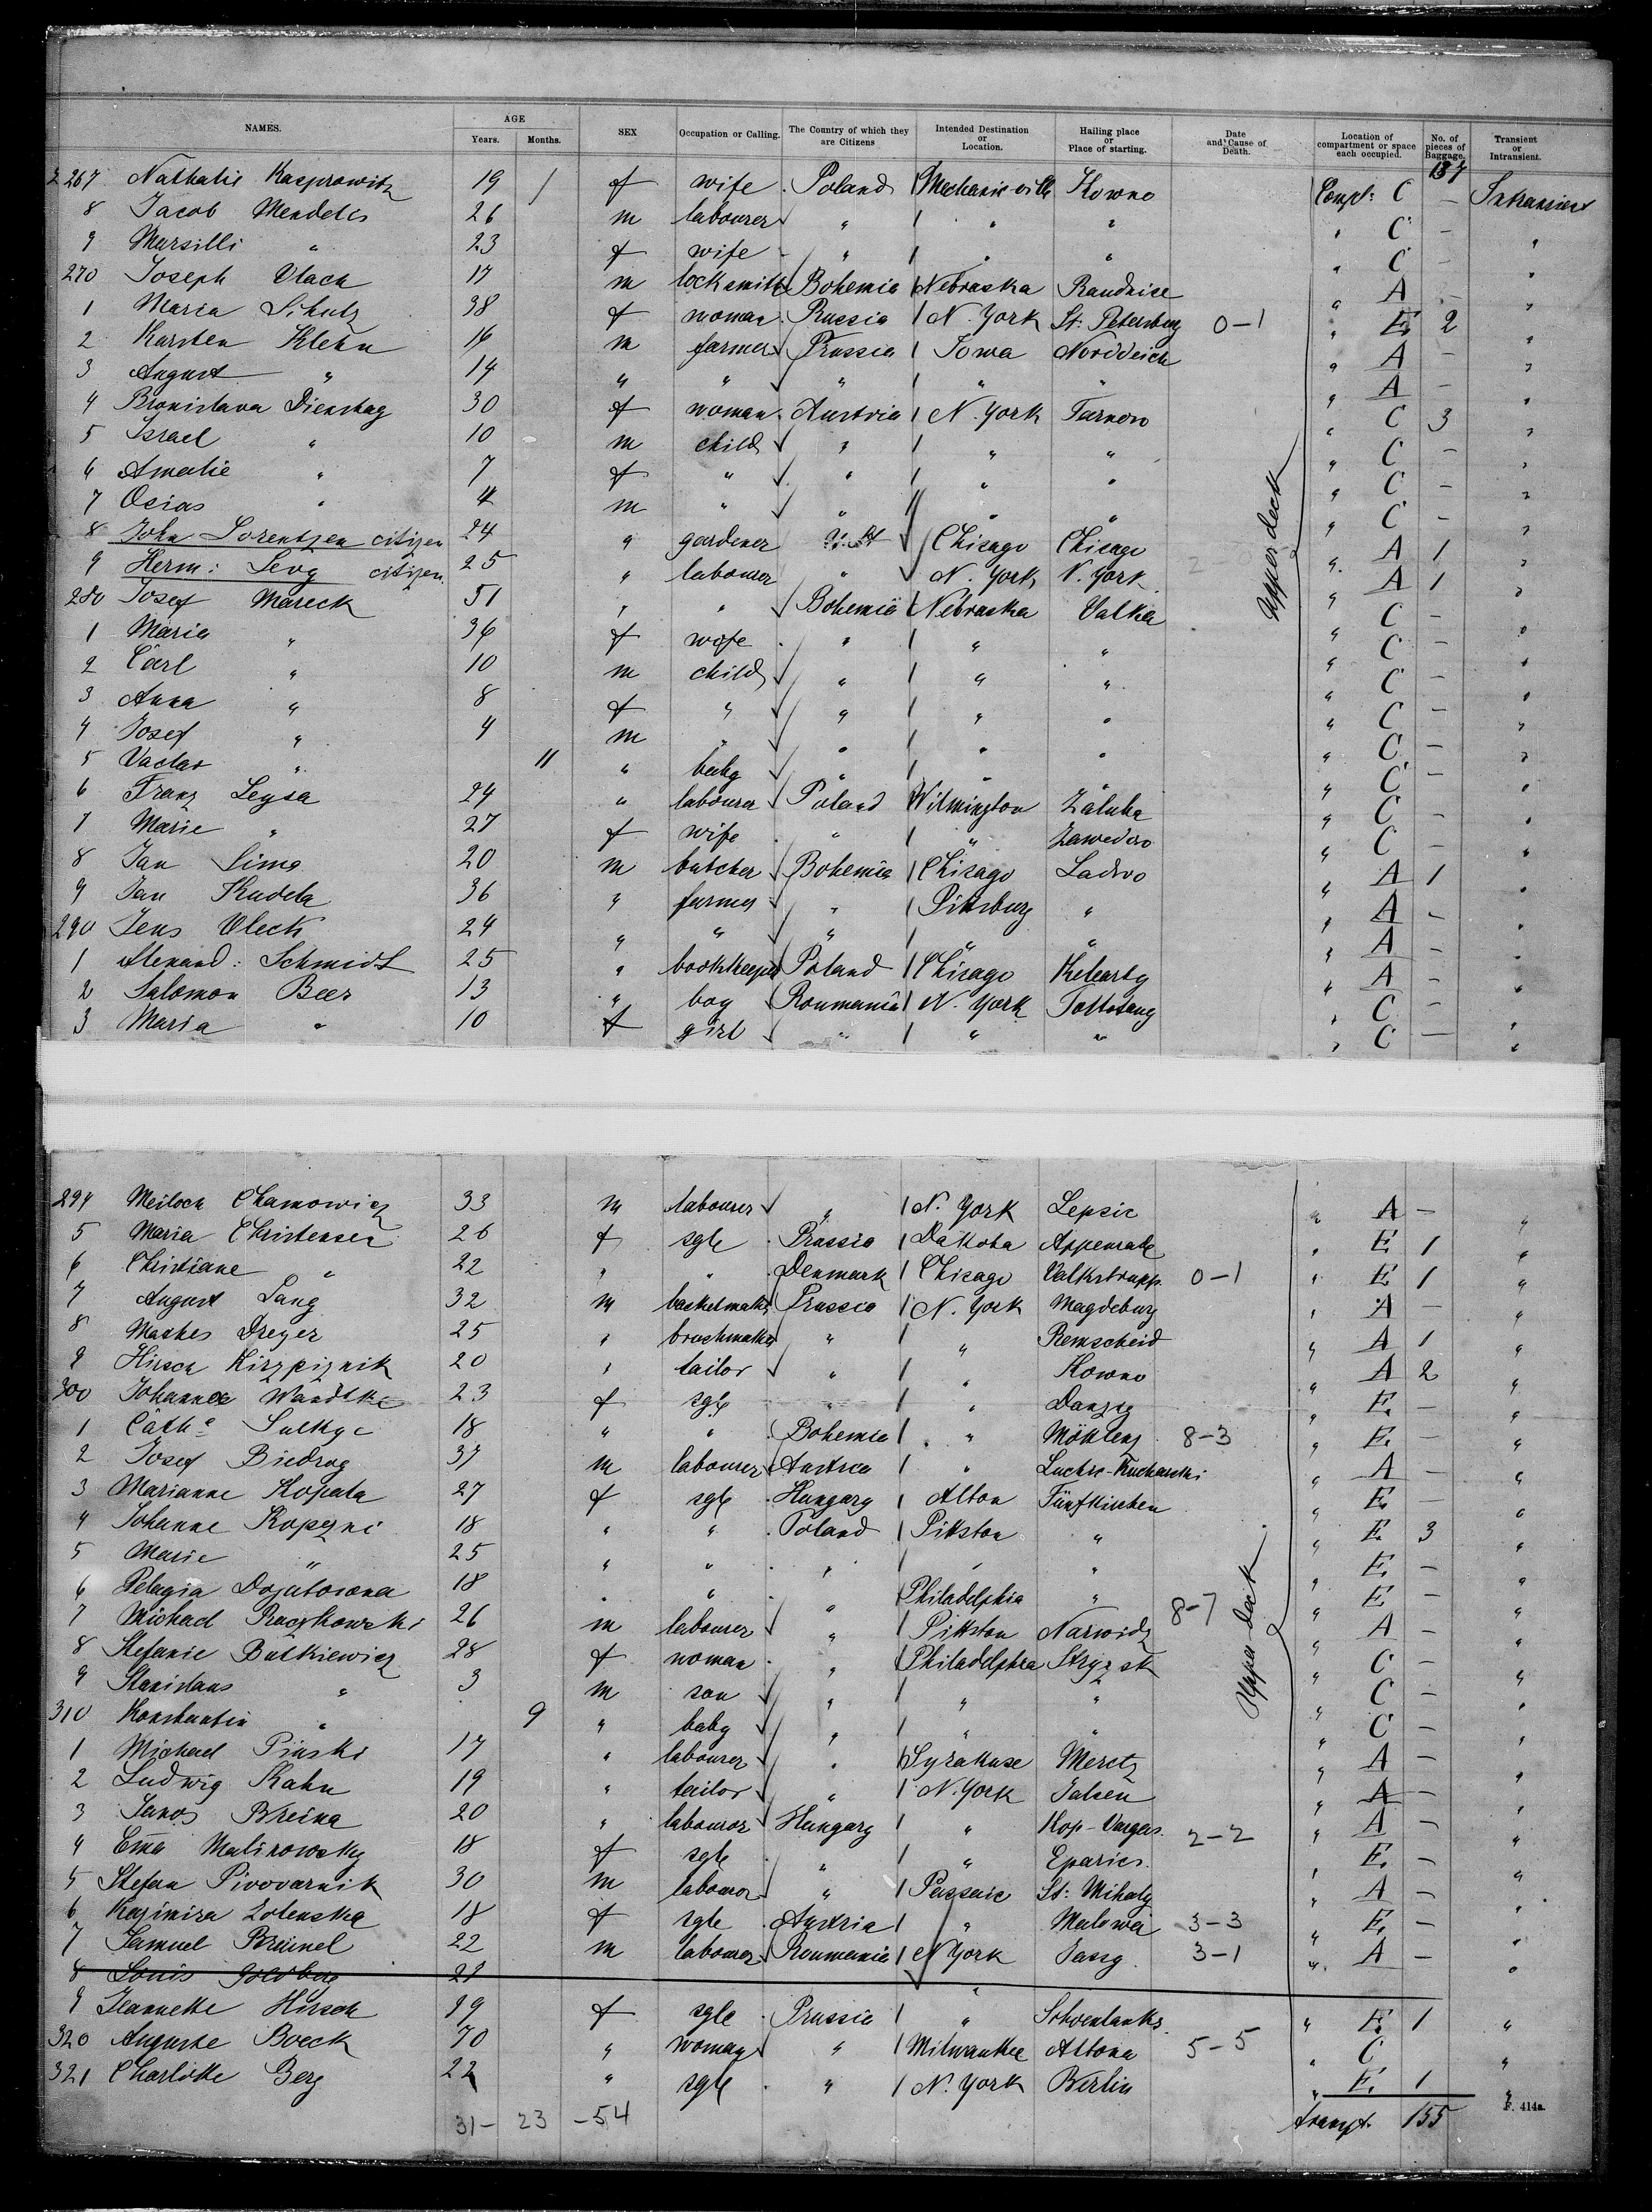 NAMES. AGE Years. Months. SEX Occupation or Calling. The Country of which they are Citizens Intended Destination or Location. Hailing place or Place of starting. Date and Cause of Death. Location of compartment or space each occupied. No. of pieces of Baggage. Transient or Intransient.
267 Nathalie Kasprowitz 19 f wife Poland Mechanicville Kowno Compt: C —
8 Jacob Mendelis 26 m labourer " " " " C —
9 Marsilli " 23 f wife " " " " C —
270 Joseph Vlach 17 m locksmith Bohemia Nebraska Raudnice " A — "
1 Maria Schulz 38 f woman Russia N. York St: Petersburg 0-1 " E. 2 "
2 Karsten Klehn 16 m farmer Prussia Iowa Norddeich " A — "
3 August " 14 " " " " " " A — "
4 Bronislava Dienstag 30 f woman Austria N. York Tarnow " C 3 "
5 Israel " 10 m child " " " " C — "
6 Amalie " 7 f " " " " " C — "
7 Osias " 4 m " " " " " C — "
8 John Lorentzen citizen 24 " gardener Chicago Chicago " A 1 "
9 Herm: Levy citizen 25 " labourer " N. York N. York " A 1 "
280 Josef Mareck 51 " " Bohemia Nebraska Valka " C — "
1 Maria " 36 f wife " " " " C — "
2 Carl " 10 m child " " " " C — "
3 Anna " 8 f " " " " " C — "
4 Josef " 4 m " " " " " C — "
5 Vaclav " 11 " baby " " " " C — "
6 Franz Leysa 24 " labourer Poland Wilmington Zaluka " C — "
7 Marie " 27 f wife " " " C — "
8 Jan Sima 20 m butcher Bohemia Chicago Ladvo " A 1 "
9 Jan Kudela 36 " farmer " Pittsburg " " A — "
290 Jens Vleck 24 " " " " " " A — "
1 Schmidt 25 " bookkeeper Poland Chicago " A — "
2 Salomon Beer 13 " boy Roumania N. York " C — "
3 Maria " 10 f girl " " " " C — "
Upper deck
294 Meiloch Chamowicz 33 m labourer " N. York Lepsic " A — "
5 Maria Christensen 26 f sgle Prussia Dakota Appenrade " E. 1 "
6 Christiane " 22 " " Denmark Chicago 0-1 " E. 1 "
7 August Lang 32 m basketmaker Prussia N. York Magdeburg " A — "
8 Dreyer 25 " brushmaker " " Remscheid " A 1 "
9 Hirsch Kirzpiznik 20 " tailor " " Kowno " A 2 "
300 Johanna Wandtke 23 f sgle " " Danzig " E. — "
1 Cath. 18 " " Bohemia " 8-3 " E. — "
2 Josef Biedrog 37 m labourer Austria " " A — "
3 Marianne Kopata 27 f sgle Hungary Alton Fünfkirchen " E. — "
4 Johanne Kopezni 18 " " Poland Pittston " " E. 3 "
5 Marie " 25 " " " " " " E. — "
6 Pelagia 18 " " " Philadelphia " " E. — "
7 Michael Raczkowski 26 m labourer " Pittston 8-7 " A — "
8 Stefanie Butkiewicz 28 f woman " Philadelphia " C — "
9 Stanislaus " 3 m son " " " " C — "
310 Konstantin " 9 " baby " " " " C — "
1 Michael Pinski 17 " labourer " Syrakuse Meretz " A — "
2 Ludwig Kahn 19 " tailor " N. York " A — "
3 Janos Breina 20 " labourer Hungary " " A — "
4 Ema Malinowsky 18 f sgle " " Eparies 2-2 " E. — "
5 Stefan Pivovarnik 30 m labourer " Passaic St: Mihaly " A — "
6 Kazimira Zolenska 18 f sgle Austria " 3-3 " E. — "
7 Samuel Breinel 22 m labourer Roumania N York Jassy 3-1 " A — "
8 Louis Goldberg 28
9 Jeannette Hirsch 29 f sgle Prussia " " E. 1 "
320 Auguste Boeck 70 " woman " Milwaukee Altona 5-5 " C "
321 Charlotte Berg 22 " sgle " N. York Berlin " E. 1 "
Upper deck
31- 23 -54 transpt. 155
F. 414a.